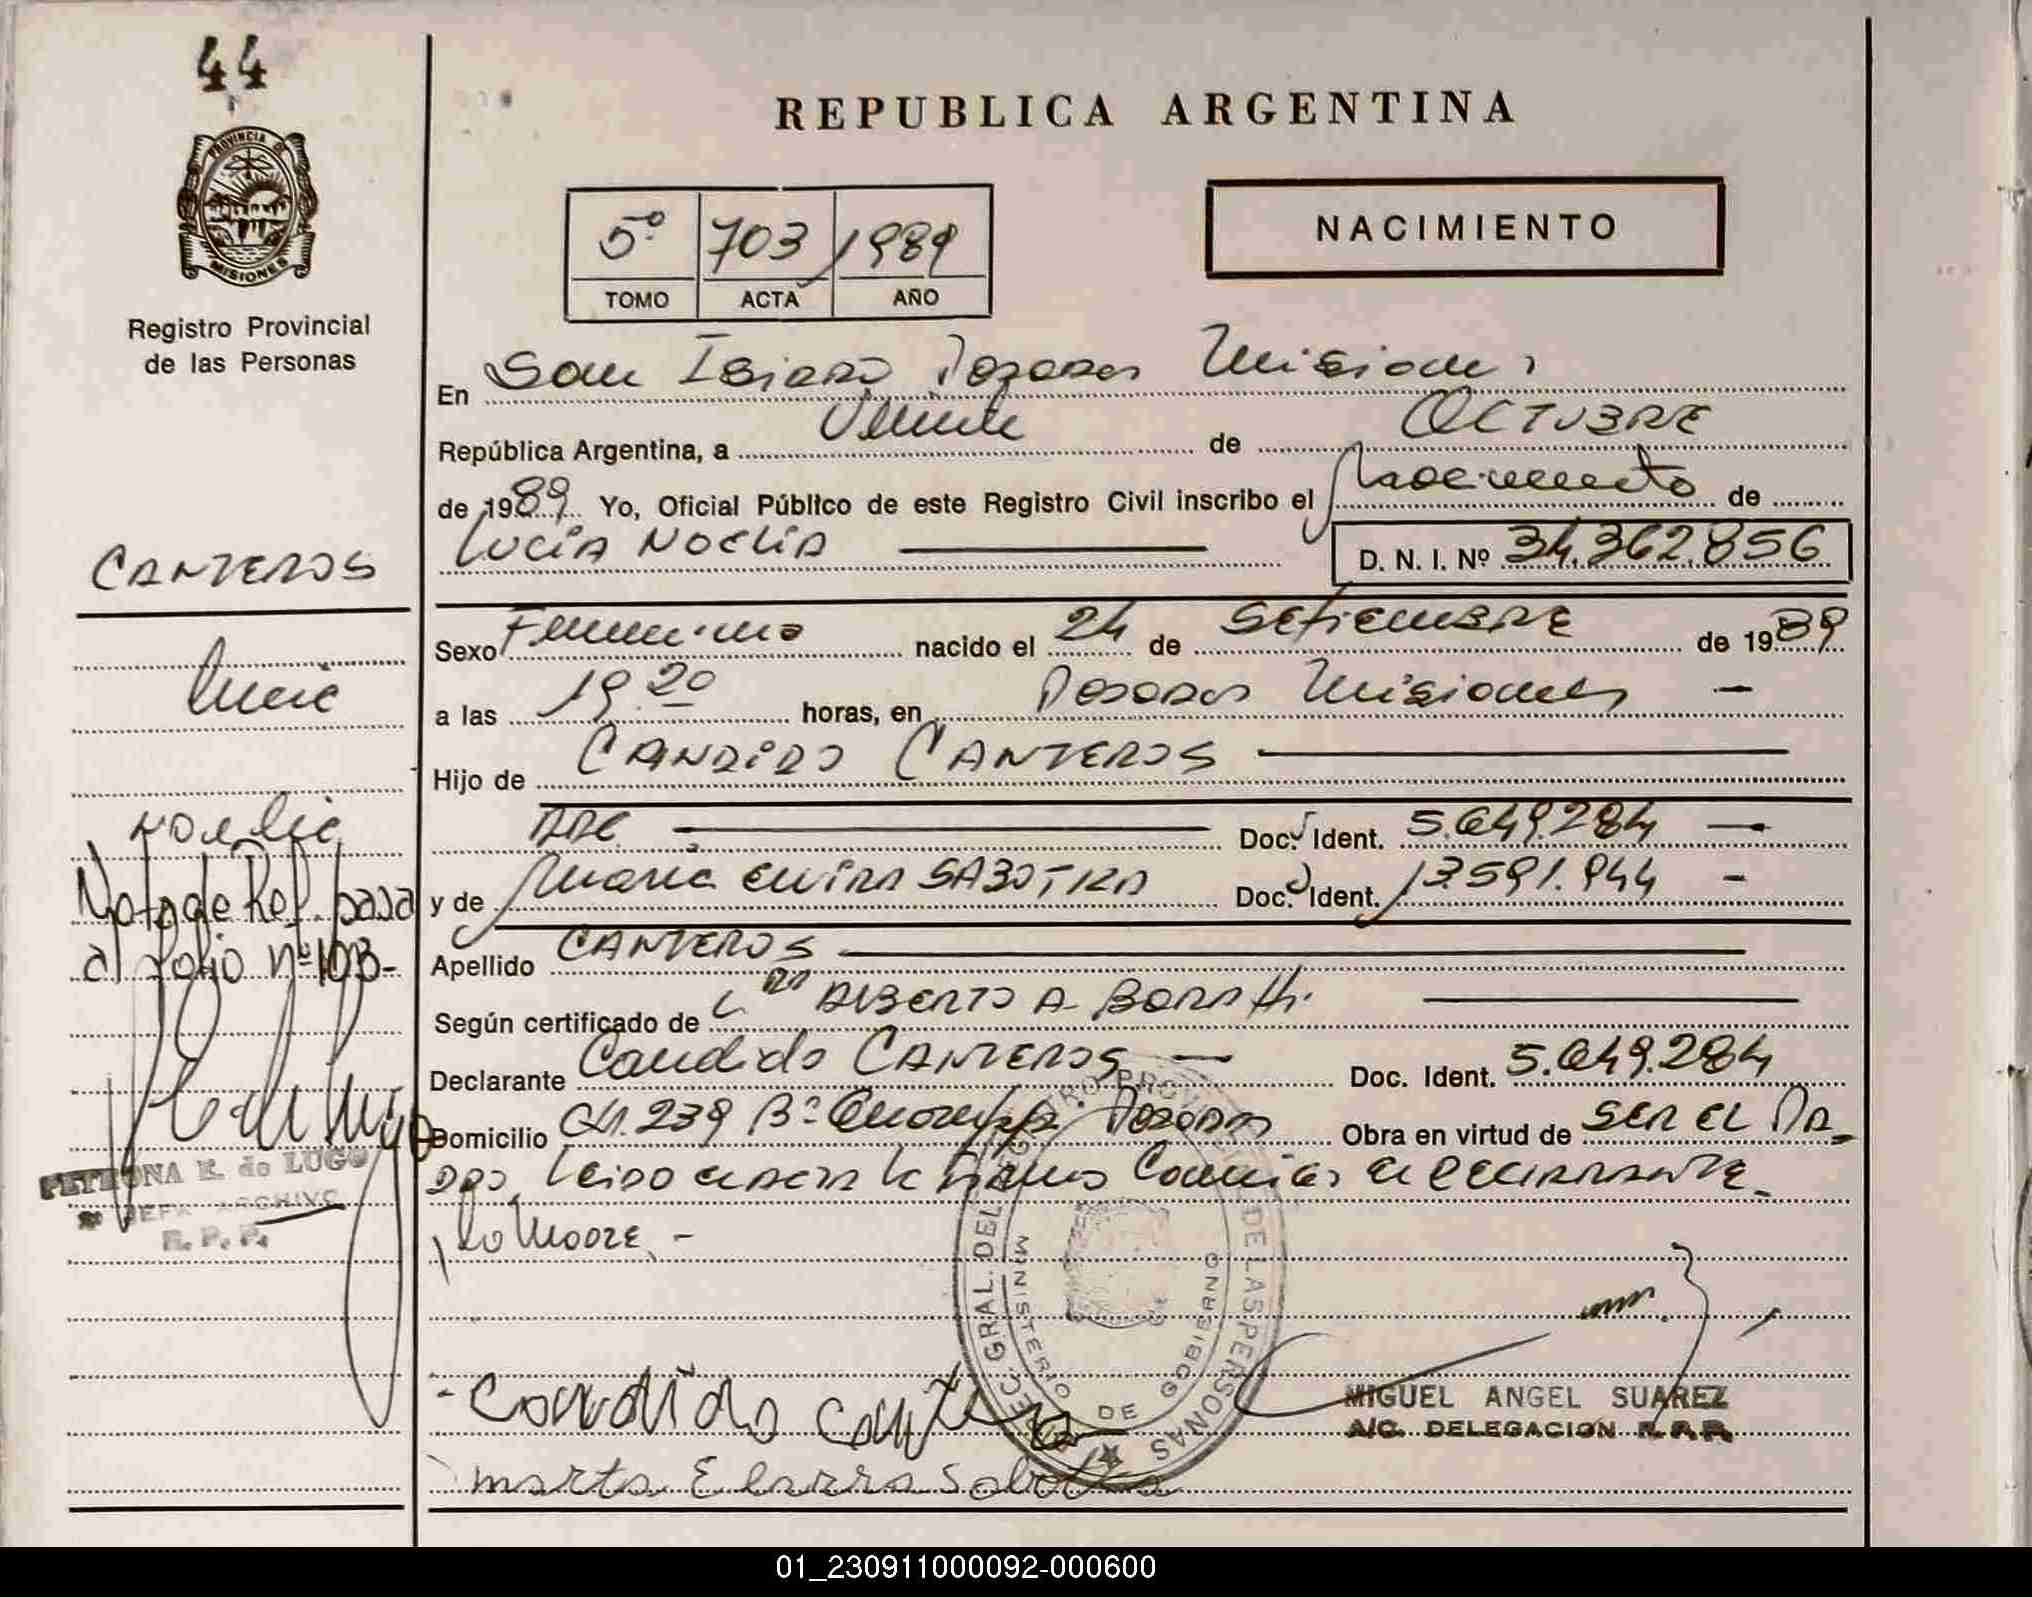 44
PROVINCIA DE
MISIONES
Registro Provincial
de las Personas
REPUBLICA ARGENTINA
5º 703 1989
TOMO ACTA AÑO
NACIMIENTO
En San Isidro Posadas Misiones
República Argentina, a Veinte de OCTUBRE
de 1989 Yo, Oficial Público de este Registro Civil inscribo el Nacimiento de
LUCIA NOELIA D. N. I. Nº 34.362.856
CANTEROS
Sexo Femenino nacido el 24 de SETIEMBRE de 1989
Lucia
a las 19.20 horas, en Posadas Misiones —
Hijo de CANDIDO CANTEROS
Noelia
Doc. Ident. 5.649.284 —
y de ELVIRA Doc. Ident. 13.591.944 —
Nota de Ref. pasa
al folio nº 103-
Apellido CANTEROS
Según certificado de ALBERTO A.
Declarante Candido CANTEROS — Doc. Ident. 5.649.284
Domicilio 239 Bº Posadas Obra en virtud de SER EL PA-
DRE, Leido el DECLARANTE.
PETRONA E. de LUGO
JEFA ARCHIVO
R. P. P.
SEC. GRAL. DEL REGISTRO PROVINCIAL DE LAS PERSONAS
MINISTERIO DE GOBIERNO
Candido
MIGUEL ANGEL SUAREZ
A/C. DELEGACION R.P.P.
01_230911000092-000600